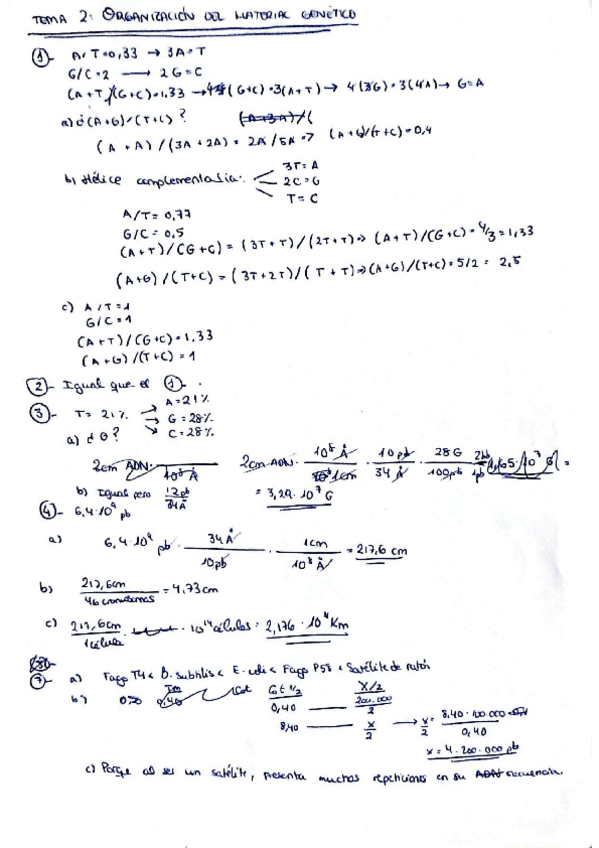 TEMA 2: ORGANIZACIÓN DEL MATERIAL GENÉTICO
①- A/T=0,33 → 3A=T
G/C=2 → 2G=C
(A+T)/(G+C)=1,33 → (G+C)·3(A+T) → 4(3G)=3(4A) → G=A
a) ¿(A+G)/(T+C)?
(A+A)/(3A+2A) = 2A/5A → (A+G)/(T+C)=0,4
b) Hélice complementaria:
3T=A
2C=G
T=C
A/T=0,77
G/C=0,5
(A+T)/(G+C) = (3T+T)/(2T+T) → (A+T)/(G+C) = 4/3 = 1,33
(A+G)/(T+C) = (3T+2T)/(T+T) → (A+G)/(T+C) = 5/2 = 2,5
c) A/T=1
G/C=1
(A+T)/(G+C)=1,33
(A+G)/(T+C)=1
②- Igual que el ①-.
③- T=21%
A=21%
G=28%
C=28%
a) ¿G?
2cm ADN · 10⁸Å/1cm · 10pb/34Å · 28G/100pb · = 3,29·10⁷ G
b) Igual pero 12pb/34Å
④- 6,4·10⁹ pb
a) 6,4·10⁹ pb · 34Å/10pb · 1cm/10⁸Å = 217,6 cm
b) 217,6cm/46 cromosomas = 4,73cm
c) 217,6cm/1célula · 10¹⁴ células = 2,176·10¹¹ Km
⑦- a) Fago T4 < B. subtilis < E. coli < Fago P58 < Satélite de ratón
b) Cot ½ X/2
0,40 — 200.000/2
8,40 — X/2 → X/2 = 8,40·100.000/0,40
x = 4.200.000 pb
c) Porque al ser un satélite, presenta muchas repeticiones en su secuencia.